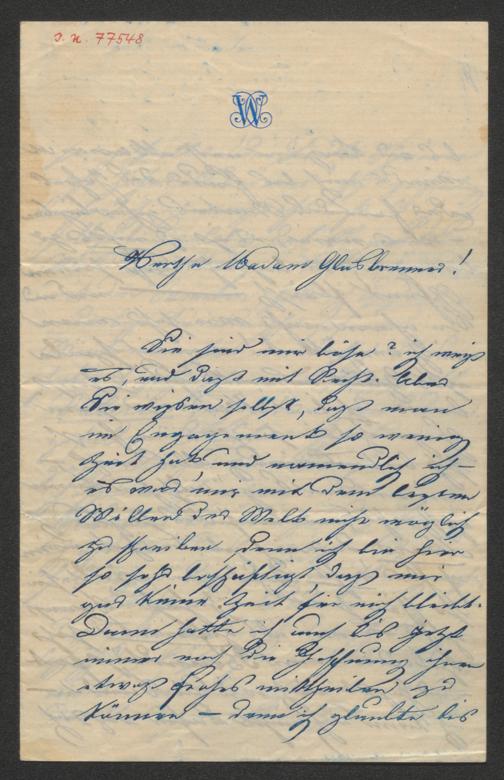 J. N. 77548
W
Werthe Madam Glasbrenner!
Sie sind mir böse? ich weiß
es, und daß mit Recht. Aber
Sie wissen selbst, daß man
im Engagement so wenig
Zeit hat und namendlich ich –
es war mir mit dem besten
Willen der Welt nicht möglich
zu schreiben, denn ich bin hier
so sehr beschäftigt, daß mir
gar keine Zeit für mich bleibt.
Dann hatte ich auch bis jetzt
immer noch die Hoffnung ihnen
etwas frohes mittheilen zu
können – denn ich glaubte bis